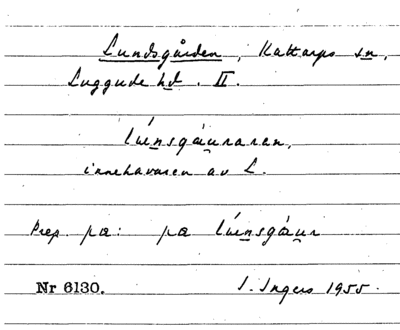 Lundsgården, Kattarps sn,
Luggude hd. II.
lúnsgáuraran,
innehavaren av L.
Prep. pa: pa lúnsgáur
Nr 6130. I. Ingers 1955.